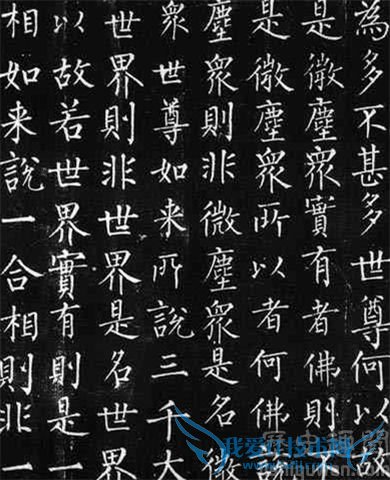 為多不甚多世尊何以故
是微塵眾實有者佛則不
是微塵眾所以者何佛說
塵眾則非微塵眾是名微
眾世尊如来所說三千大
世界則非世界是名世界
以故若世界實有則是一
相如来說一合相則非一